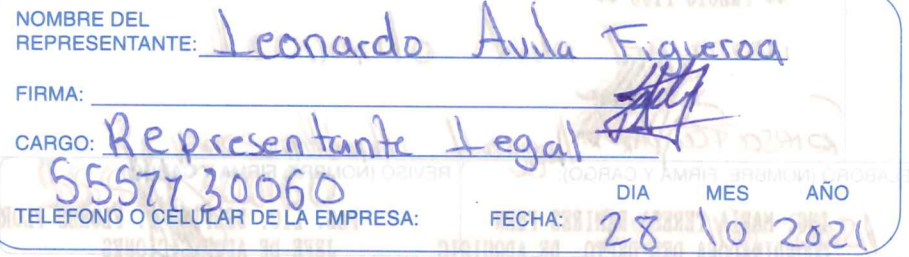 NOMBRE DEL
REPRESENTANTE: Leonardo Avila Figueroa
FIRMA:
CARGO: Representante Legal
5557730060
TELEFONO O CELULAR DE LA EMPRESA: FECHA: DIA MES AÑO
28 10 2021